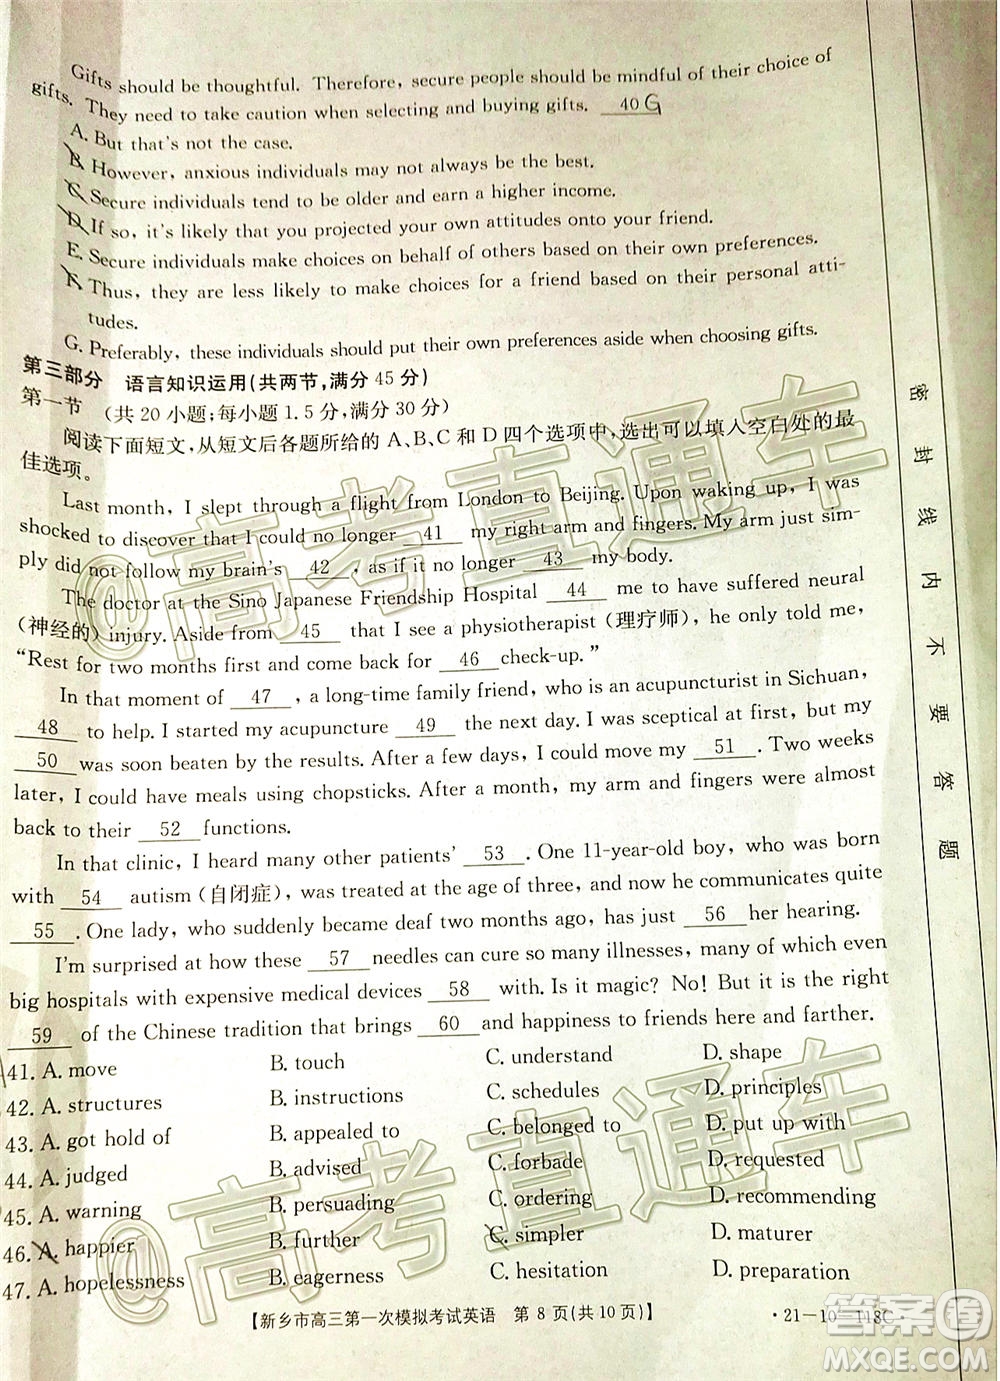 Gifts should be thoughtful. Therefore, secure people should be mindful of their choice of
gifts. They need to take caution when selecting and buying gifts. 40 G
A. But that's not the case.
B. However, anxious individuals may not always be the best.
C. Secure individuals tend to be older and earn a higher income.
D. If so, it's likely that you projected your own attitudes onto your friend.
E. Secure individuals make choices on behalf of others based on their own preferences.
F. Thus, they are less likely to make choices for a friend based on their personal atti-
tudes.
G. Preferably, these individuals should put their own preferences aside when choosing gifts.
第三部分 语言知识运用(共两节,满分 45 分)
第一节 (共 20 小题;每小题 1.5 分,满分 30 分)
阅读下面短文,从短文后各题所给的 A、B、C 和 D 四个选项中,选出可以填入空白处的最
佳选项。
Last month, I slept through a flight from London to Beijing. Upon waking up, I was
shocked to discover that I could no longer 41 my right arm and fingers. My arm just sim-
ply did not follow my brain's 42, as if it no longer 43 my body.
The doctor at the Sino Japanese Friendship Hospital 44 me to have suffered neural
(神经的) injury. Aside from 45 that I see a physiotherapist(理疗师), he only told me,
“Rest for two months first and come back for 46 check-up.”
In that moment of 47, a long-time family friend, who is an acupuncturist in Sichuan,
48 to help. I started my acupuncture 49 the next day. I was sceptical at first, but my
50 was soon beaten by the results. After a few days, I could move my 51. Two weeks
later, I could have meals using chopsticks. After a month, my arm and fingers were almost
back to their 52 functions.
In that clinic, I heard many other patients' 53. One 11-year-old boy, who was born
with 54 autism(自闭症), was treated at the age of three, and now he communicates quite
55. One lady, who suddenly became deaf two months ago, has just 56 her hearing.
I'm surprised at how these 57 needles can cure so many illnesses, many of which even
big hospitals with expensive medical devices 58 with. Is it magic? No! But it is the right
59 of the Chinese tradition that brings 60 and happiness to friends here and farther.
41. A. move B. touch C. understand D. shape
42. A. structures B. instructions C. schedules D. principles
43. A. got hold of B. appealed to C. belonged to D. put up with
44. A. judged B. advised C. forbade D. requested
45. A. warning B. persuading C. ordering D. recommending
46. A. happier B. further C. simpler D. maturer
47. A. hopelessness B. eagerness C. hesitation D. preparation
【新乡市高三第一次模拟考试英语 第 8 页(共 10 页)】 ·21-10-118C·
密封线内不要答题
@高考直通车
@高考直通车
答案圈
MXQE.COM